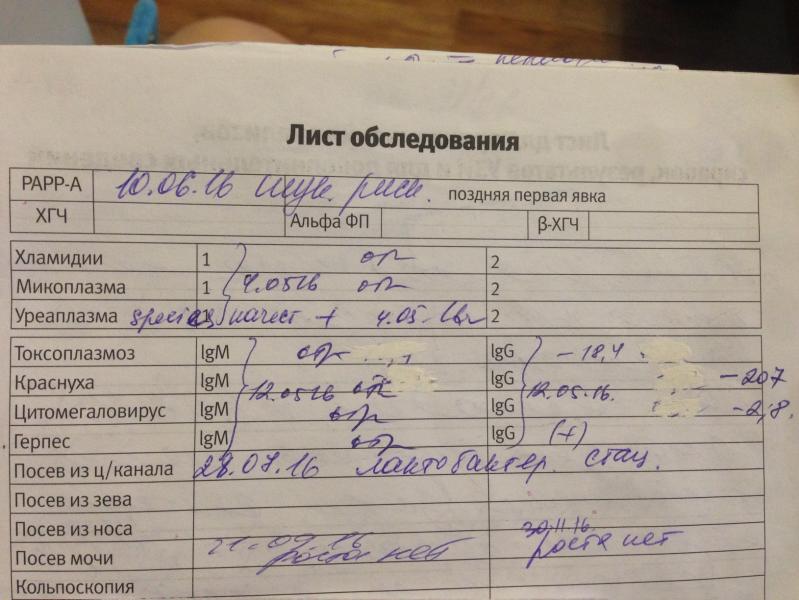 Лист обследования
PAPP-A 10.06.16 поздняя первая явка
ХГЧ Альфа ФП β-ХГЧ
Хламидии 1 отр 2
Микоплазма 1 4.0516 отр 2
Уреаплазма species 1 качест + 4.05.16г 2
Токсоплазмоз IgM отр IgG - 18,4
Краснуха IgM 12.0516 отр IgG 12.05.16. - 207
Цитомегаловирус IgM отр IgG - 2,8.
Герпес IgM отр IgG (+)
Посев из ц/канала 28.07.16 лактобактер. стац.
Посев из зева
Посев из носа 30.11.16.
Посев мочи 21.09.16 роста нет роста нет
Кольпоскопия